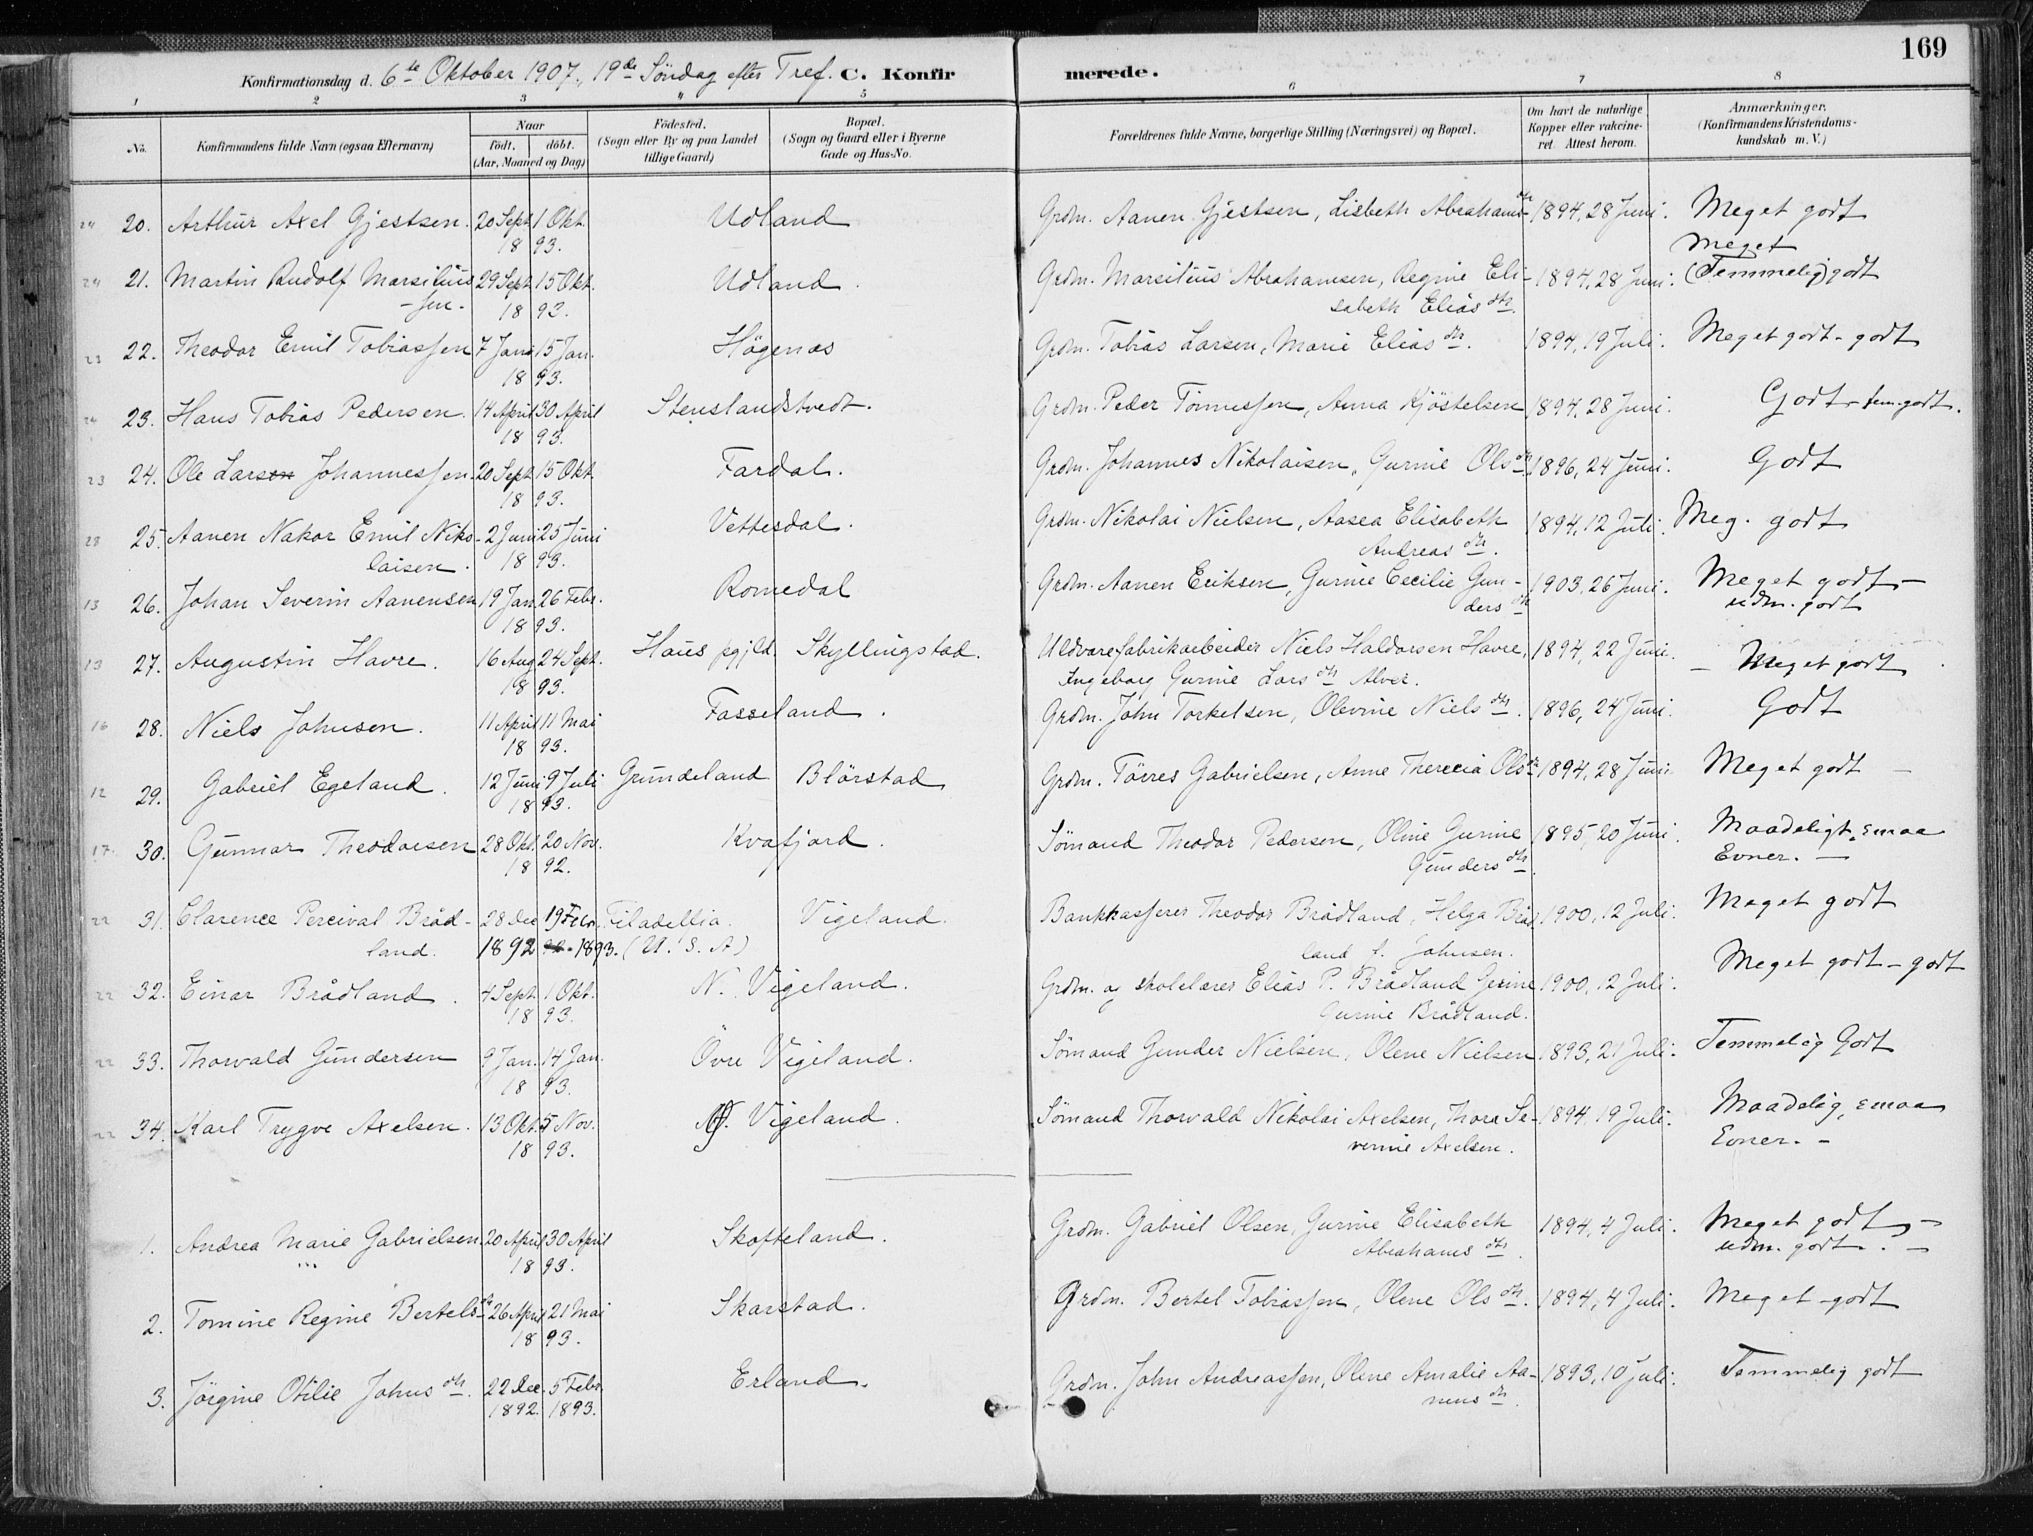 169
Konfirmationsdag d. 6te Oktober 1907, 19de Søndag efter Tref. C. Konfirmerede.
1 2 3 4 5 6 7 8
No. Konfirmandens fulde Navn (ogsaa Efternavn) Naar født. døbt. (Aar, Maaned og Dag) Fødested. (Sogn eller By og paa Landet tillige Gaard) Bopæl. (Sogn og Gaard eller i Byerne Gade og Hus-No. Forældrenes fulde Navne, borgerlige Stilling (Næringsvei) og Bopæl. Om havt de naturlige Kopper eller vakcineret. Attest herom. Anmærkninger. (Konfirmandens Kristendomskundskab m. V.)
24 20. Arthur Axel Gjestsen. 20 Sept. 1 Okt. Udland Grdm. Aanen Gjestsen, Lisbeth Abrahamsdtr 1894, 28 Juni. Meget godt
18 93. Meget
24 21. Martin Rudolf Marsilius 29 Sept. 15 Okt. Udland Grdm. Marsilius Abrahamsen, Regine Eli- 1894, 28 Juni. (Temmelig) godt
-sen. 18 93. sabeth Eliasdtr.
22 22. Theodor Emil Tobiassen 7 Jan. 15 Jan. Högenæs Grdm. Tobias Larsen, Marie Eliasdtr. 1894, 19 Juli. Meget godt - godt
18 93.
24 23. Hans Tobias Pedersen. 14 April 30 April Stenslandstvedt. Grdm. Peder Tönnessen, Anna Kjöstelsen 1894, 28 Juni. Godt - tem. godt.
18 93.
23 24. Ole Larsen Johannessen. 20 Sept. 15 Okt. Fardal. Grdm. Johannes Nikolaisen, Gurine Olsdtr 1896, 24 Juni. Godt
18 93.
28 25. Aanen Nakor Emil Niko- 2 Juni 25 Juni Vettesdal. Grdm. Nikolai Nielsen, Aasea Elisabeth 1894, 12 Juli. Meg. godt
laisen. 18 93. Andreasdtr.
13 26. Johan Severin Aanensen 19 Jan. 26 Febr. Romedal Grdm. Aanen Eriksen, Gurine Cecilie Gun- 1903, 26 Juni. Meget godt -
18 93. dersdtr udm. godt
13 27. Augustin Havre. 16 Aug 24 Sept. Haus pgjld. Skyllingstad. Uldvarefabrikarbeider Niels Haldorsen Havre, 1894, 22 Juni. - Meget godt
18 93. Ingeborg Gurine Larsdtr Alver.
16 28. Niels Johnsen. 11 April 11 Mai Fasseland. Grdm. John Torkelsen, Olevine Nielsdtr. 1896, 24 Juni. Godt
18 93.
12 29. Gabriel Egeland. 12 Juni 9 Juli Grundeland Blörstad Grdm. Törres Gabrielsen, Anne Therecia Olsdtr 1894, 28 Juni. Meget godt -
18 93.
17 30. Gunnar Theodorsen 28 Okt. 20 Nov. Kvafjord. Sømand Theodor Pedersen, Oline Gurine 1895, 20 Juni. Maadeligt, smaa
18 92. Gundersdtr. Evner. -
22 31. Clarence Percival Bråd- 28 Dec 19 Febr. Filadelfia. Vigeland. Bankkasserer Theodor Brådland, Helga Bråd 1900, 12 Juli. Meget godt
land. 1892 1893. (U. S. A) land f. Johnsen.
22 32. Einar Brådland. 4 Sept. 1 Okt. N. Vigeland. Grdm. og skolelærer Elias P. Brådland Gesine 1900, 12 Juli. Meget godt - godt
18 93. Gurine Brådland.
22 33. Thorvald Gundersen 9 Jan. 14 Jan. Övre Vigeland. Sømand Gunder Nielsen, Olene Nielsen 1893, 21 Juli. Temmelig Godt
18 93.
22 34. Karl Trygve Axelsen. 13 Okt. 5 Nov. Vigeland. Sømand Thorvald Nikolai Axelsen, Thora Se- 1894, 19 Juli. Maadelig, smaa
18 93. verine Axelsen. Evner. -
1. Andrea Marie Gabrielsen. 20 April 30 April Skofteland. Grdm. Gabriel Olsen, Gurine Elisabeth 1894, 4 Juli. Meget godt, -
18 93. Abrahamsdtr. udm. godt. -
2. Tomine Regine Bertelsdtr 26 April 21 Mai Skarstad. Grdm. Bertel Tobiassen, Olene Olsdtr. 1894, 4 Juli. Meget godt
18 93.
3. Jörgine Otilie Johnsdtr. 22 Dec. 5 Febr. Erland. Grdm. John Andreassen, Olene Amalie Aa- 1893, 10 Juli. Temmelig godt
1892. 1893. nensdtr.